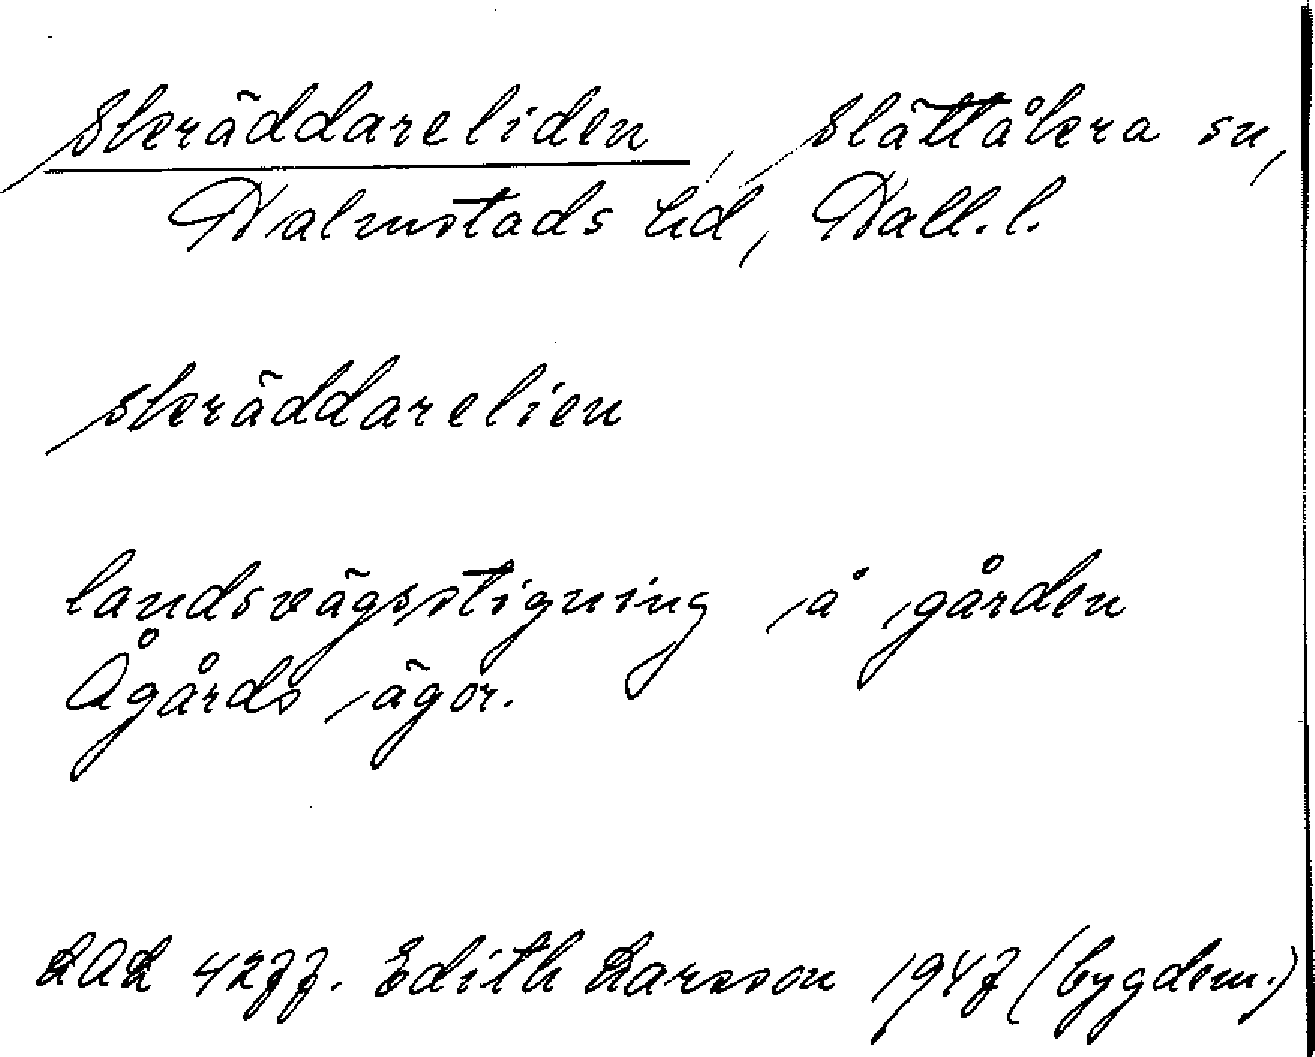 Skräddareliden, Slättåkra sn,
Halmstads hd, Hall. l.
skräddarelien
landsvägsstigning å gården
Ågårds ägor.
LAL 4277. Edith Larsson 1947 (bygdem.)